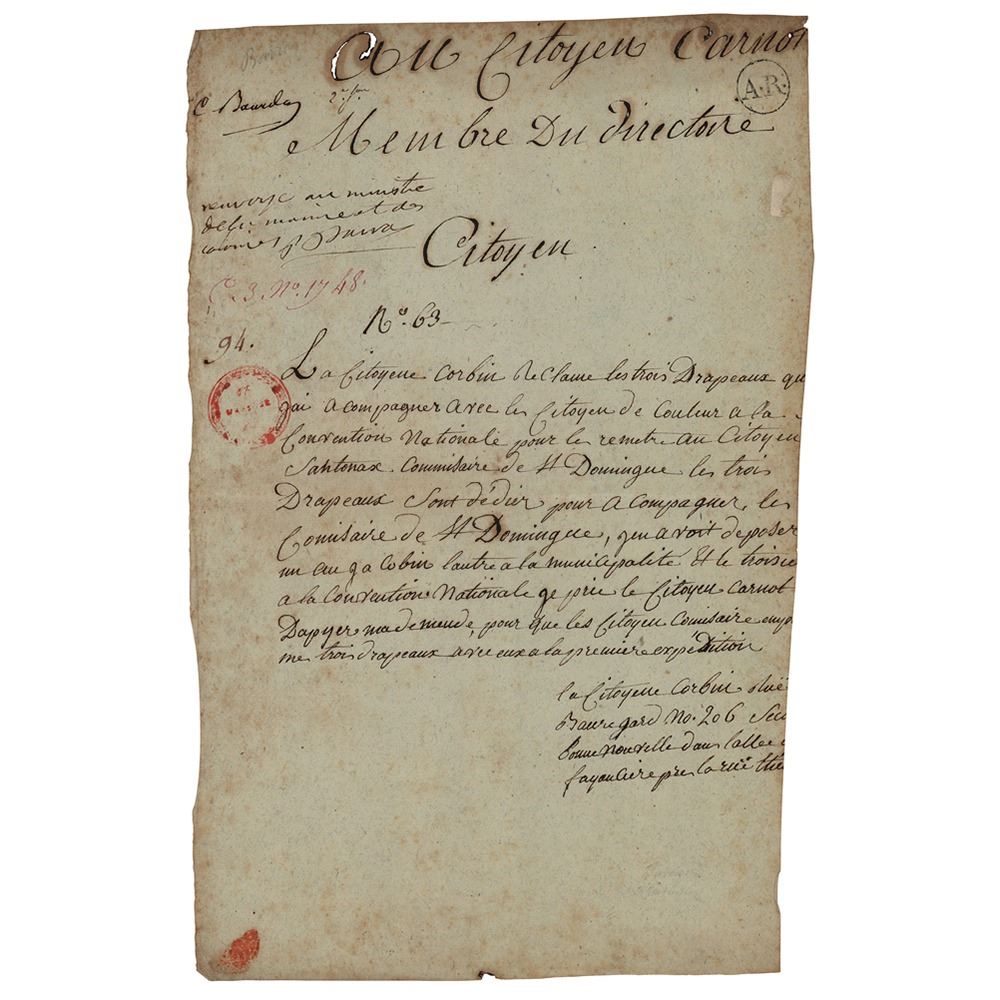 Au Citoyen Carnot
A.R.
C Baurda
2e. son
Membre Du directoire
renvoyé au ministre
de la marine et des
colonies
Citoyen
C. 3. No. 1748.
No. 63
94.
La Citoyene Corbin Reclame les trois Drapeaux qu
jai acompagner avec les Citoyen de Couleur a la
Convention Nationalé pour les remetre au Citoyen
Santonax Commisaire de St Domingue les trois
Drapeaux Sont dédier pour acompagner, les
Comisaire de St Domingue, jen avoit deposer
un au jacobin lautre a la municipalité Et le troisie
a la Convention Nationale je prie le Citoyen Carnot
Dapyer ma demende, pour que les Citoyen Comisaire emp
mes trois drapeaux avec eux a la premiere expédition
la Citoyene Corbin Rüe
Bauregard No. 206 Sec
bonne nouvelle dans lallée
fayanciere pres la rüe